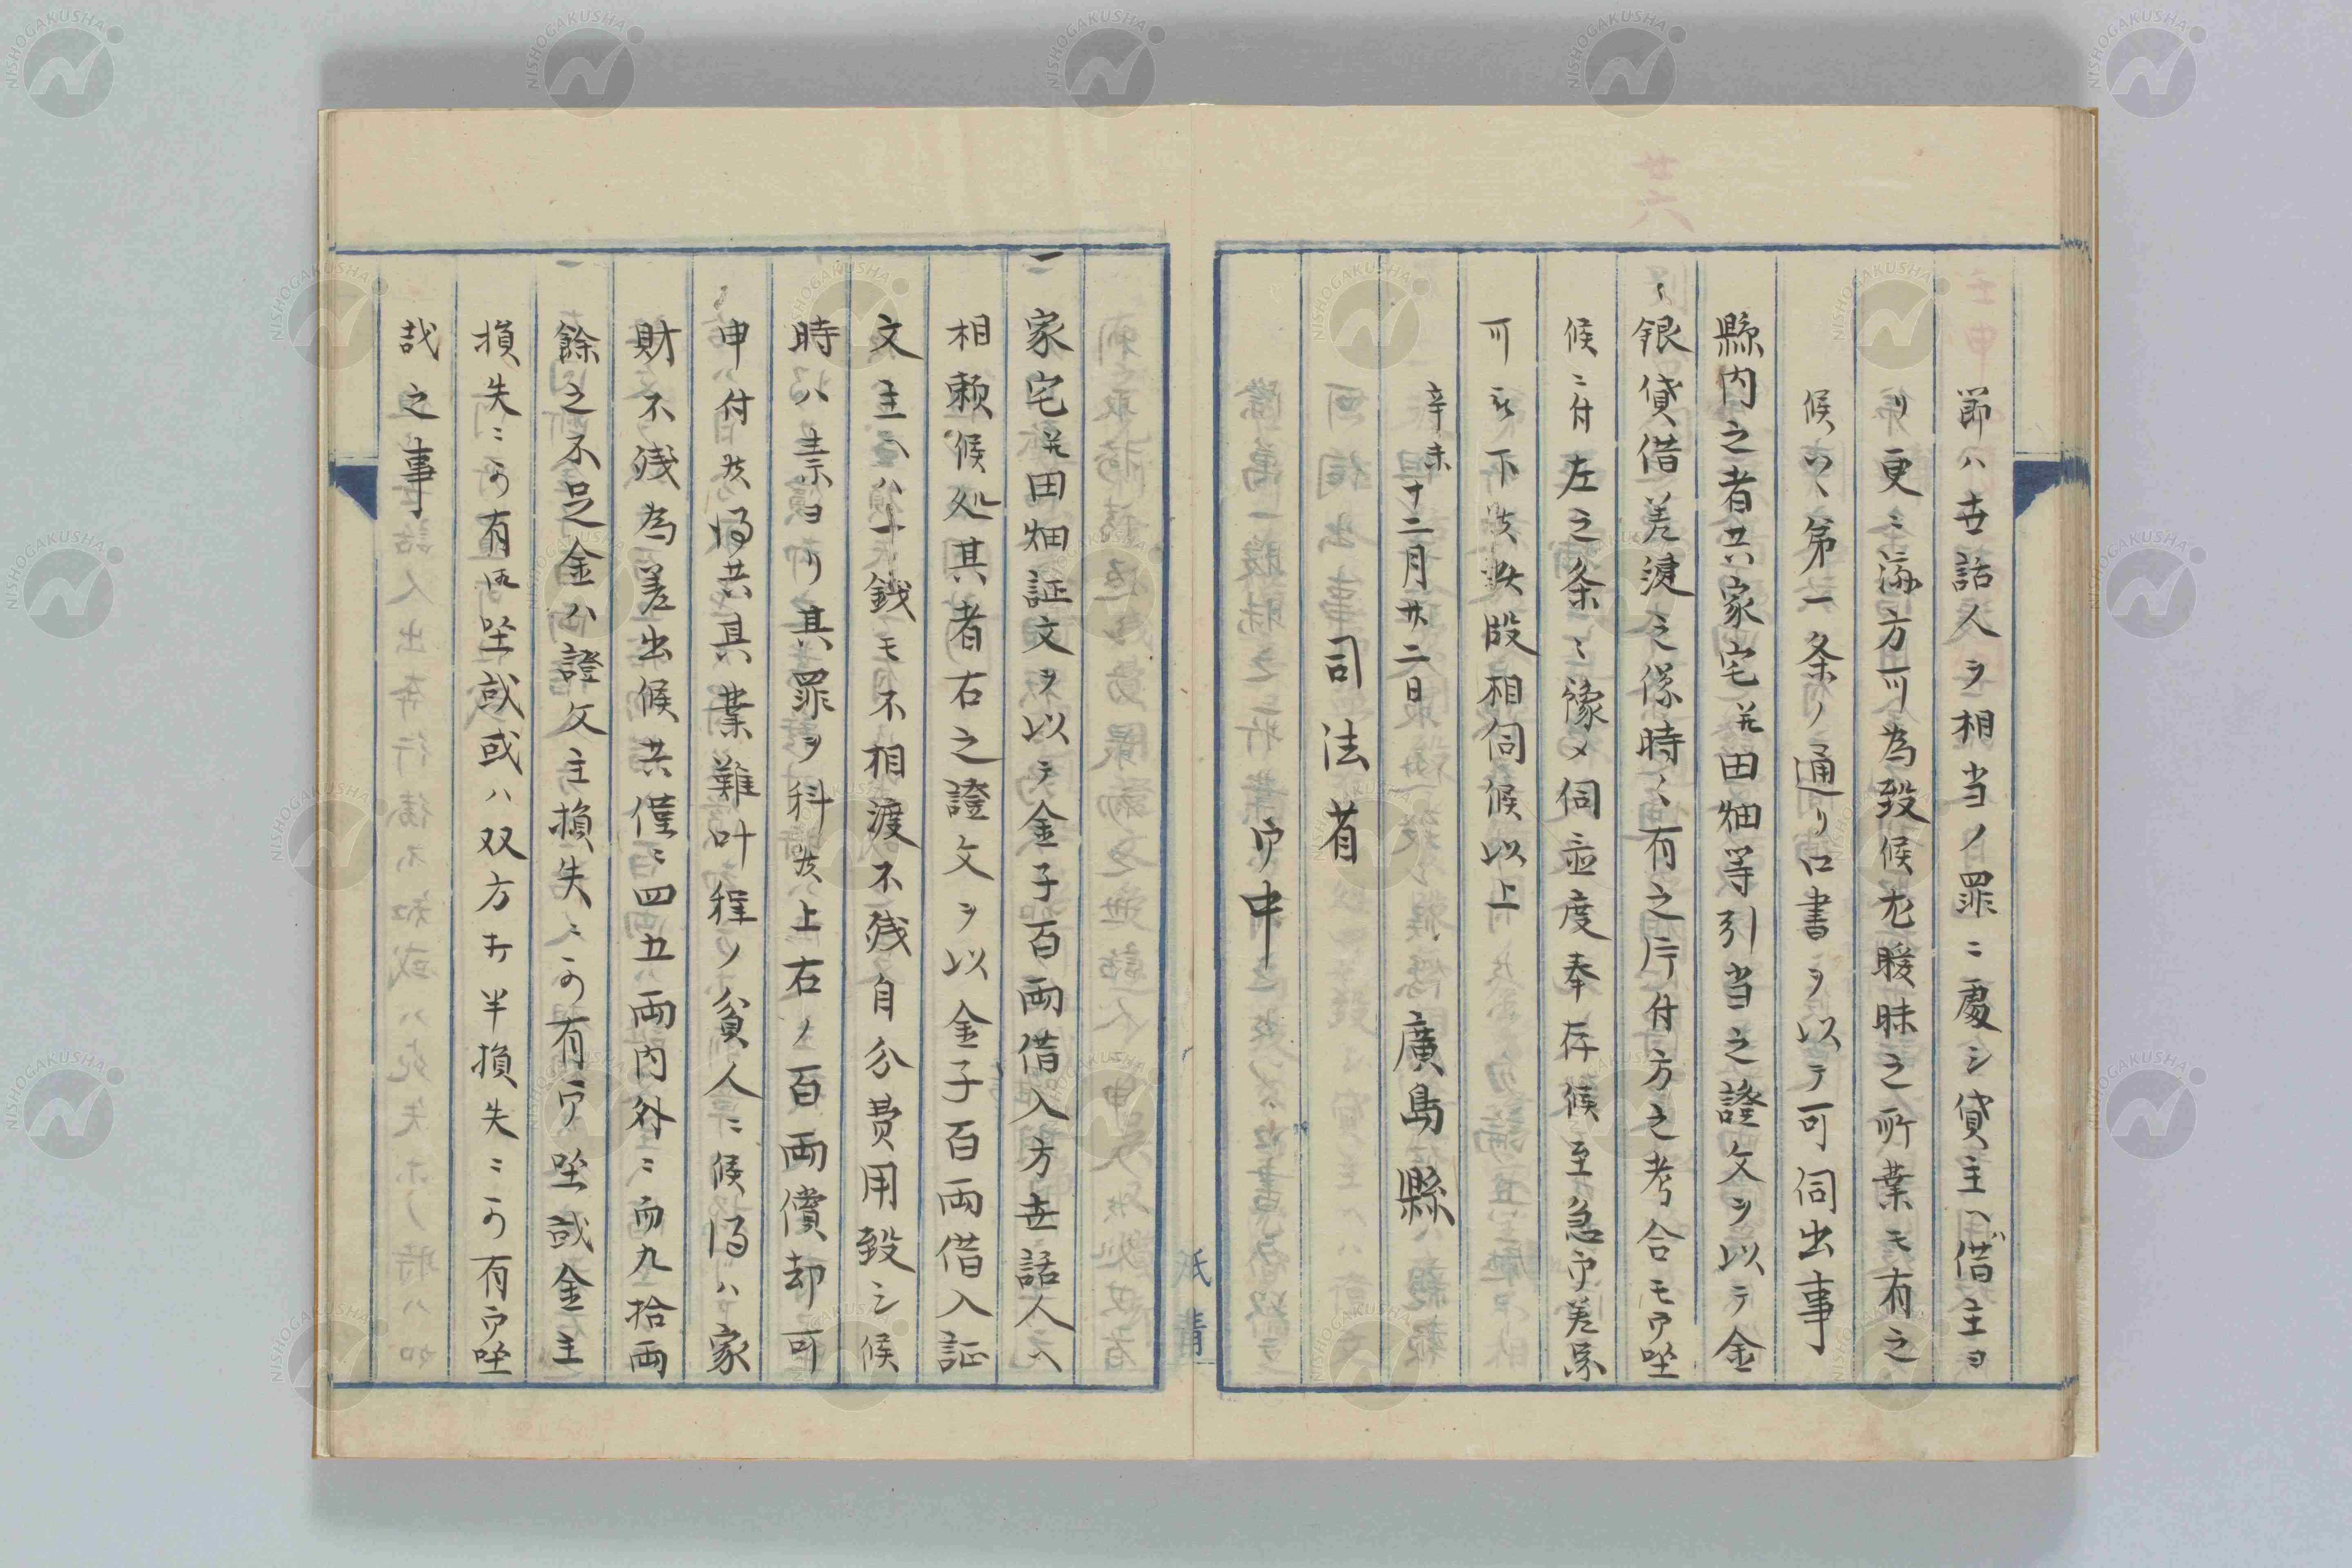 節ハ世話人ヲ相当ノ罪ニ處シ貸主ヘ借主ヨ
リ更ニ済方可為致候尤曖昧之所業モ有之
候ハヽ第一条ノ通リ口書ヲ以テ可伺出事
縣内之者共家宅并田畑等引当之證文ヲ以テ金
銀貸借差縺之係時々有之片付方之考合モ御坐
候ニ付左之条々豫メ伺並度奉存候至急御差図
可被下候此段相伺候以上
辛未十二月廿二日 廣島縣
司法省
御中
一家宅并田畑証文ヲ以テ金子百両借入方世話人ニ
相頼候処其者右之證文ヲ以金子百両借入証
文主ヘハ十銭モ不相渡不残自分費用致シ候
時ハ素ヨリ其罪ヲ科候上右ノ百両償却可
申付候得共其業難叶程ノ貧人ニ候得ハ家
財不残為差出候共僅ニ四五両内外ニ而九拾両
餘之不足金ハ證文主損失ニ可有御坐哉金主
損失ニ可有御坐哉或ハ双方ヰ半損失ニ可有御坐
哉之事